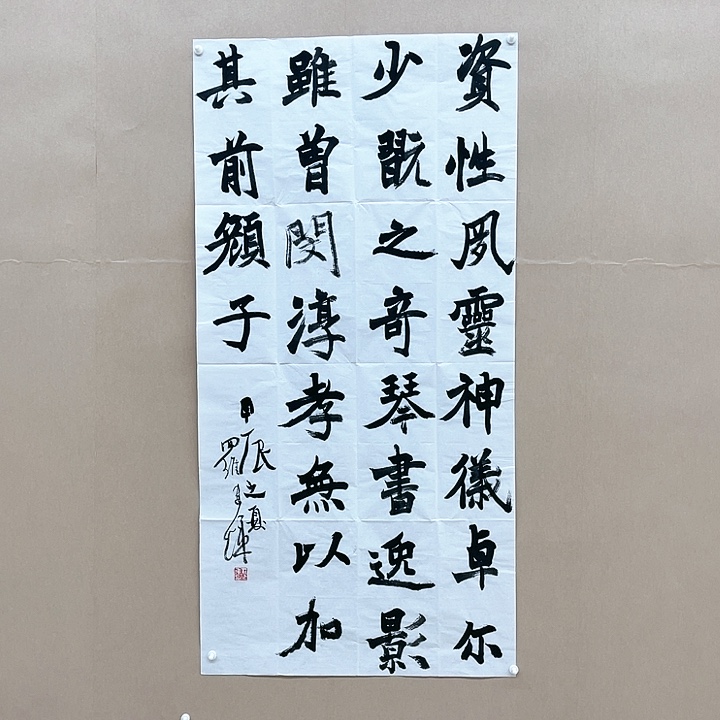 資性夙靈神儀卓尔
少翫之奇琴書逸影
雖曾閔淳孝無以加
其前顏子
甲辰之夏